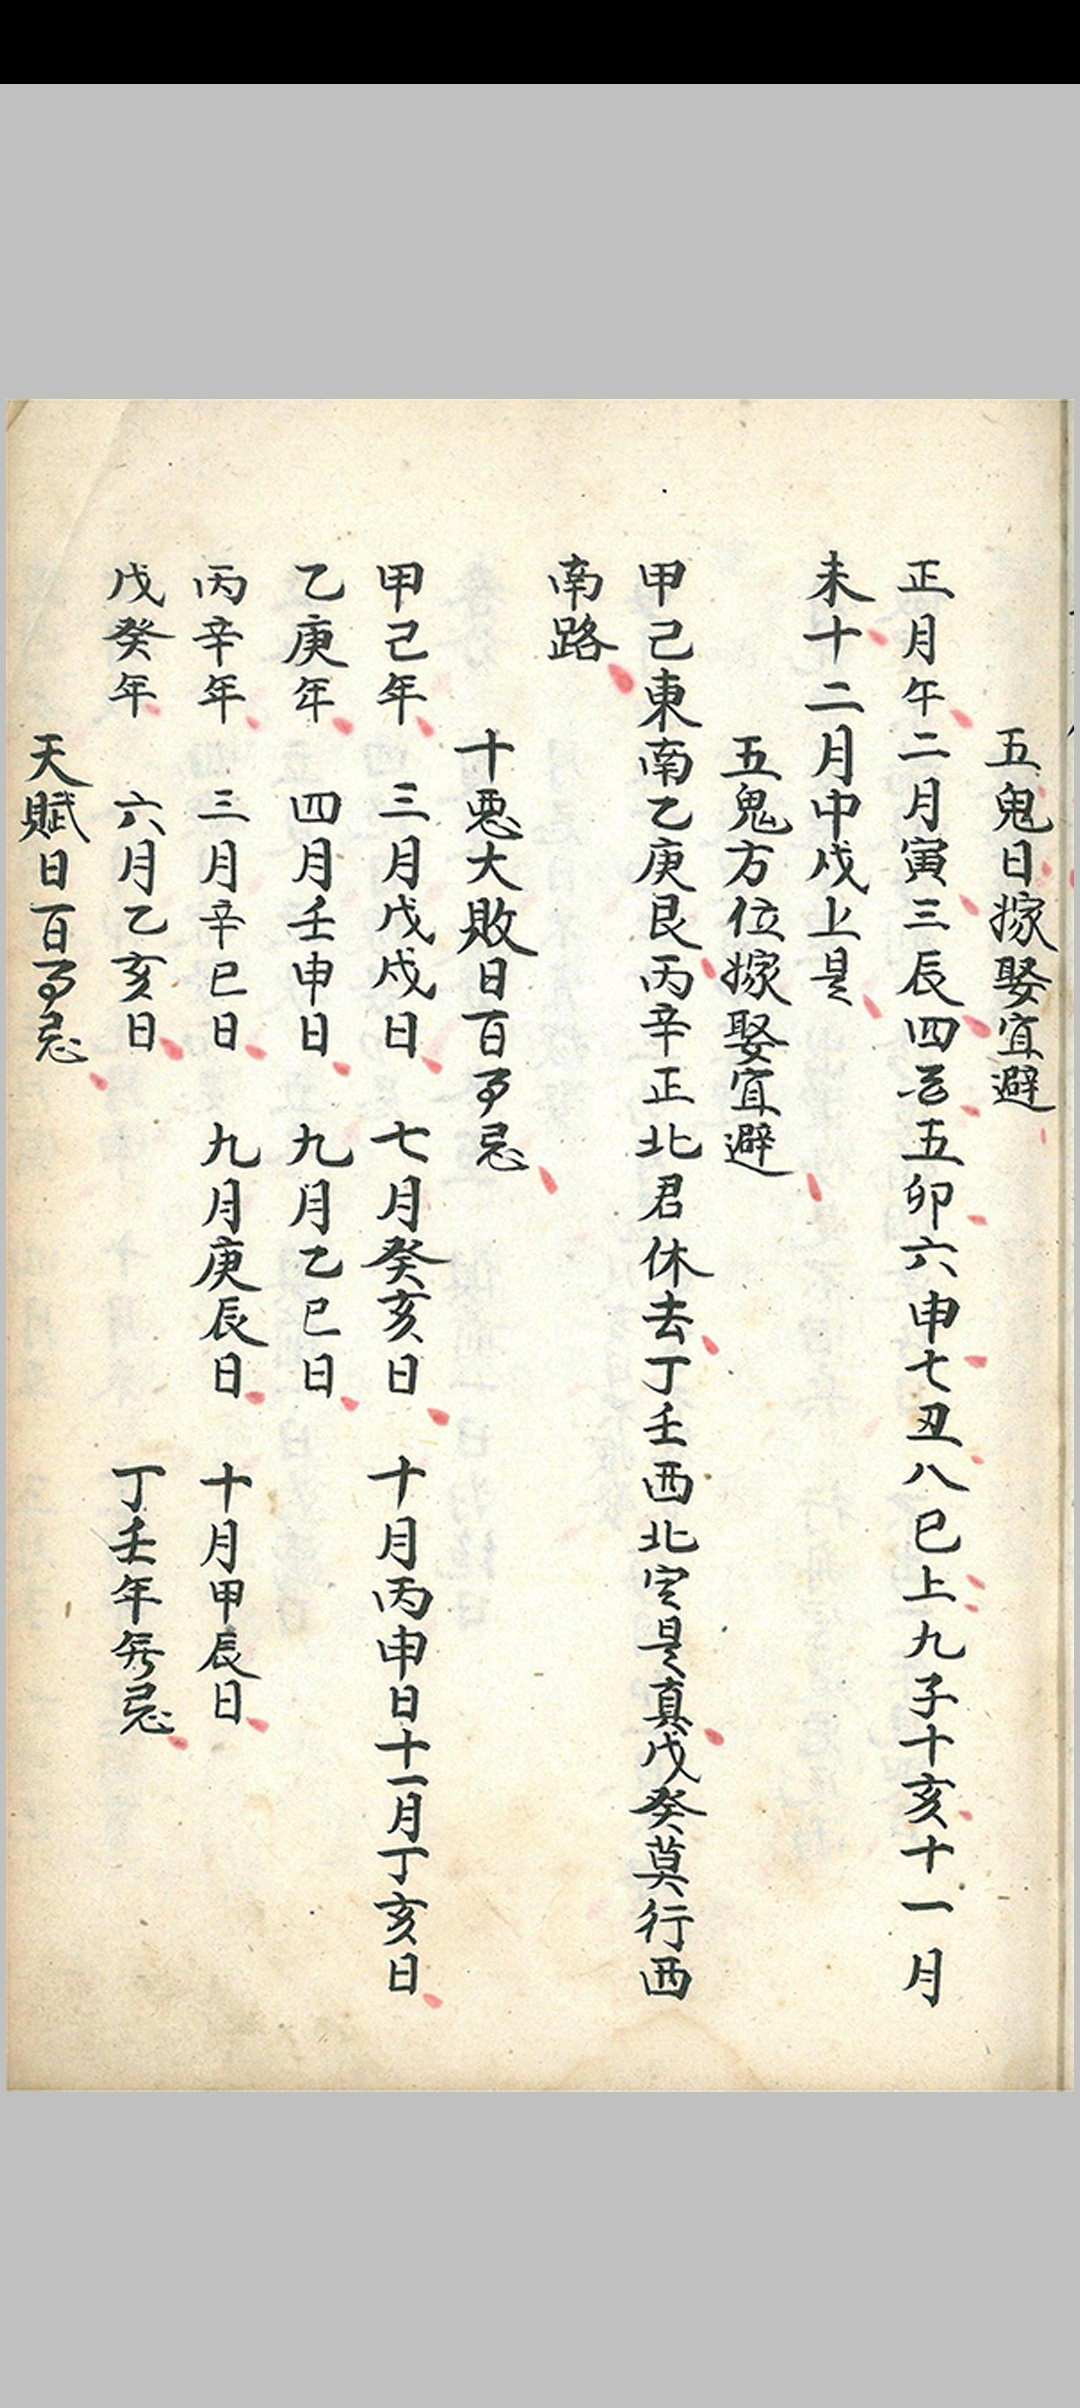 五鬼日嫁娶宜避
正月午二月寅三辰四酉五卯六申七丑八巳上九子十亥十一月
未十二月中戌上是
五鬼方位嫁娶宜避
甲己東南乙庚艮丙辛正北君休去丁壬西北定是真戊癸莫行西
南路
十悪大敗日百事忌
甲己年 三月戊戌日 七月癸亥日 十月丙申日十一月丁亥日
乙庚年 四月壬申日 九月乙巳日
丙辛年 三月辛巳日 九月庚辰日 十月甲辰日
戊癸年 六月乙亥日 丁壬年無忌
天賦日百事忌